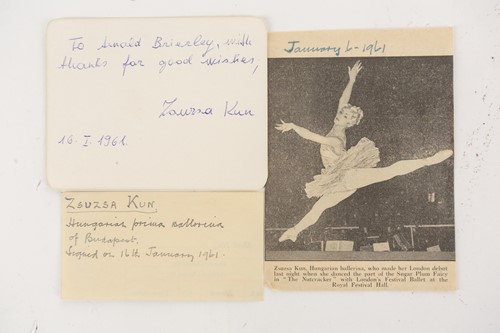 To Arnold Brierley, with
thanks for good wishes,
Zsuzsa Kun
16. I. 1961.
ZSUZSA KUN.
Hungarian prima ballerina
of Budapest.
Signed on 16th January 1961.
January 6 - 1961
Zsuzsa Kun, Hungarian ballerina, who made her London debut
last night when she danced the part of the Sugar Plum Fairy
in "The Nutcracker" with London's Festival Ballet at the
Royal Festival Hall.